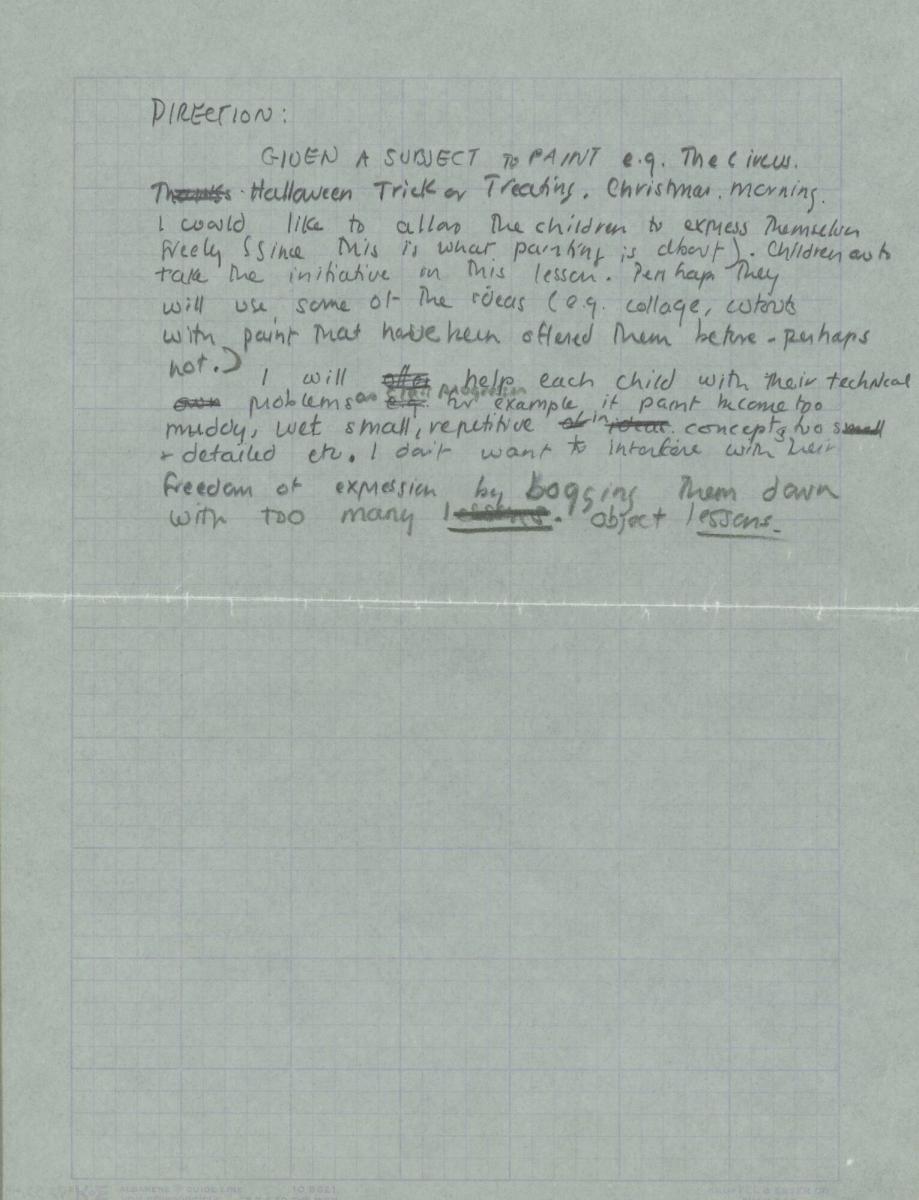 DIRECTION:
GIVEN A SUBJECT TO PAINT e.g. The Circus.
Thanks. Halloween Trick or Treating. Christmas. morning.
I would like to allow The children to express Themselves
freely (since This is what painting is about). Children are to
take The initiative in This lesson. Perhaps They
will use some of The ideas (e.g. collage, cutouts
with paint That have been offered Them before - perhaps
not.)
I will offer help each child with Their technical
own problems as progression e.g. for example if paint become too
muddy, wet small, repetitive in ideas. concept, too small
+ detailed etc. I don't want to interfere with Their
freedom of expression by bogging Them down
with too many lessons. object lessons.
ALBANENE GUIDELINE 10 8621